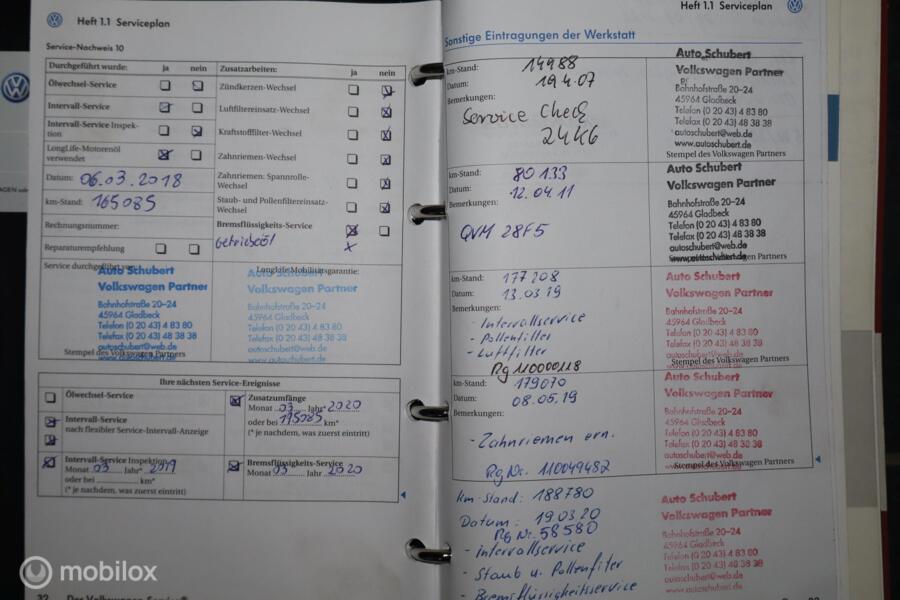 Heft 1.1 Serviceplan
Service-Nachweis 10
Durchgeführt wurde: ja nein
Ölwechsel-Service
Intervall-Service
Intervall-Service Inspek-
tion
LongLife-Motorenöl
verwendet
Datum: 06.03.2018
km-Stand: 165085
Rechnungsnummer:
Reparaturempfehlung
Zusatzarbeiten: ja nein
Zündkerzen-Wechsel
Luftfiltereinsatz-Wechsel
Kraftstofffilter-Wechsel
Zahnriemen-Wechsel
Zahnriemen: Spannrolle-
Wechsel
Staub- und Pollenfiltereinsatz-
Wechsel
Bremsflüssigkeits-Service
Getriebeöl x
Service durchgeführt
Auto Schubert
Volkswagen Partner
Bahnhofstraße 20–24
45964 Gladbeck
Telefon (0 20 43) 4 83 80
Telefax (0 20 43) 48 38 38
autoschubert@web.de
www.autoschubert.de
Stempel des Volkswagen Partners
LongLife Mobilitätsgarantie:
Auto Schubert
Volkswagen Partner
Bahnhofstraße 20–24
45964 Gladbeck
Telefon (0 20 43) 4 83 80
Telefax (0 20 43) 48 38 38
autoschubert@web.de
www.autoschubert.de
Ihre nächsten Service-Ereignisse
Ölwechsel-Service
Intervall-Service
nach flexibler Service-Intervall-Anzeige
Intervall-Service Inspektion
Monat 03 Jahr* 2019
oder bei km*
(* je nachdem, was zuerst eintritt)
Zusatzumfänge
Monat 03 Jahr* 2020
oder bei 195085 km*
(* je nachdem, was zuerst eintritt)
Bremsflüssigkeits-Service
Monat 03 Jahr 2020
32 Das Volkswagen Service
Heft 1.1 Serviceplan
Sonstige Eintragungen der Werkstatt
km-Stand: 14988
Datum: 19.4.07
Bemerkungen:
Service Check
24K6
Auto Schubert
Volkswagen Partner
Bahnhofstraße 20–24
45964 Gladbeck
Telefon (0 20 43) 4 83 80
Telefax (0 20 43) 48 38 38
autoschubert@web.de
www.autoschubert.de
Stempel des Volkswagen Partners
km-Stand: 80133
Datum: 12.04.11
Bemerkungen:
QVM 28F5
Auto Schubert
Volkswagen Partner
Bahnhofstraße 20–24
45964 Gladbeck
Telefon (0 20 43) 4 83 80
Telefax (0 20 43) 48 38 38
autoschubert@web.de
km-Stand: 177208
Datum: 13.03.19
Bemerkungen:
- Intervallservice
- Pollenfilter
- Luftfilter
Rg 110000118
Auto Schubert
Volkswagen Partner
Bahnhofstraße 20–24
45964 Gladbeck
Telefon (0 20 43) 4 83 80
Telefax (0 20 43) 48 38 38
autoschubert@web.de
Stempel des Volkswagen Partners
km-Stand: 179070
Datum: 08.05.19
Bemerkungen:
- Zahnriemen ern.
Rg Nr. 110049482
Auto Schubert
Volkswagen Partner
Bahnhofstraße 20–24
45964 Gladbeck
Telefon (0 20 43) 4 83 80
Telefax (0 20 43) 48 38 38
autoschubert@web.de
Stempel des Volkswagen Partners
km-Stand: 188780
Datum: 19.03.20
Rg Nr. 58580
- Intervallservice
- Staub u. Pollenfilter
- Bremsflüssigkeitsservice
Auto Schubert
Volkswagen Partner
Bahnhofstraße 20–24
45964 Gladbeck
Telefon (0 20 43) 4 83 80
Telefax (0 20 43) 48 38 38
autoschubert@web.de
www.autoschubert.de
mobilox